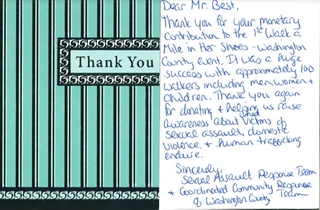 Thank You
Dear Mr. Best,
Thank you for your monetary
contribution to the 1st Walk a
Mile in Her Shoes - Washington
County event. It was a huge
success with approximately 100
walkers including men, women +
children. Thank you again
for donating + helping us raise
awareness about what victims of
sexual assault, domestic
violence, + human trafficking
endure.
Sincerely,
Sexual Assault Response Team
+ Coordinated Community Response
Team
of Washington County